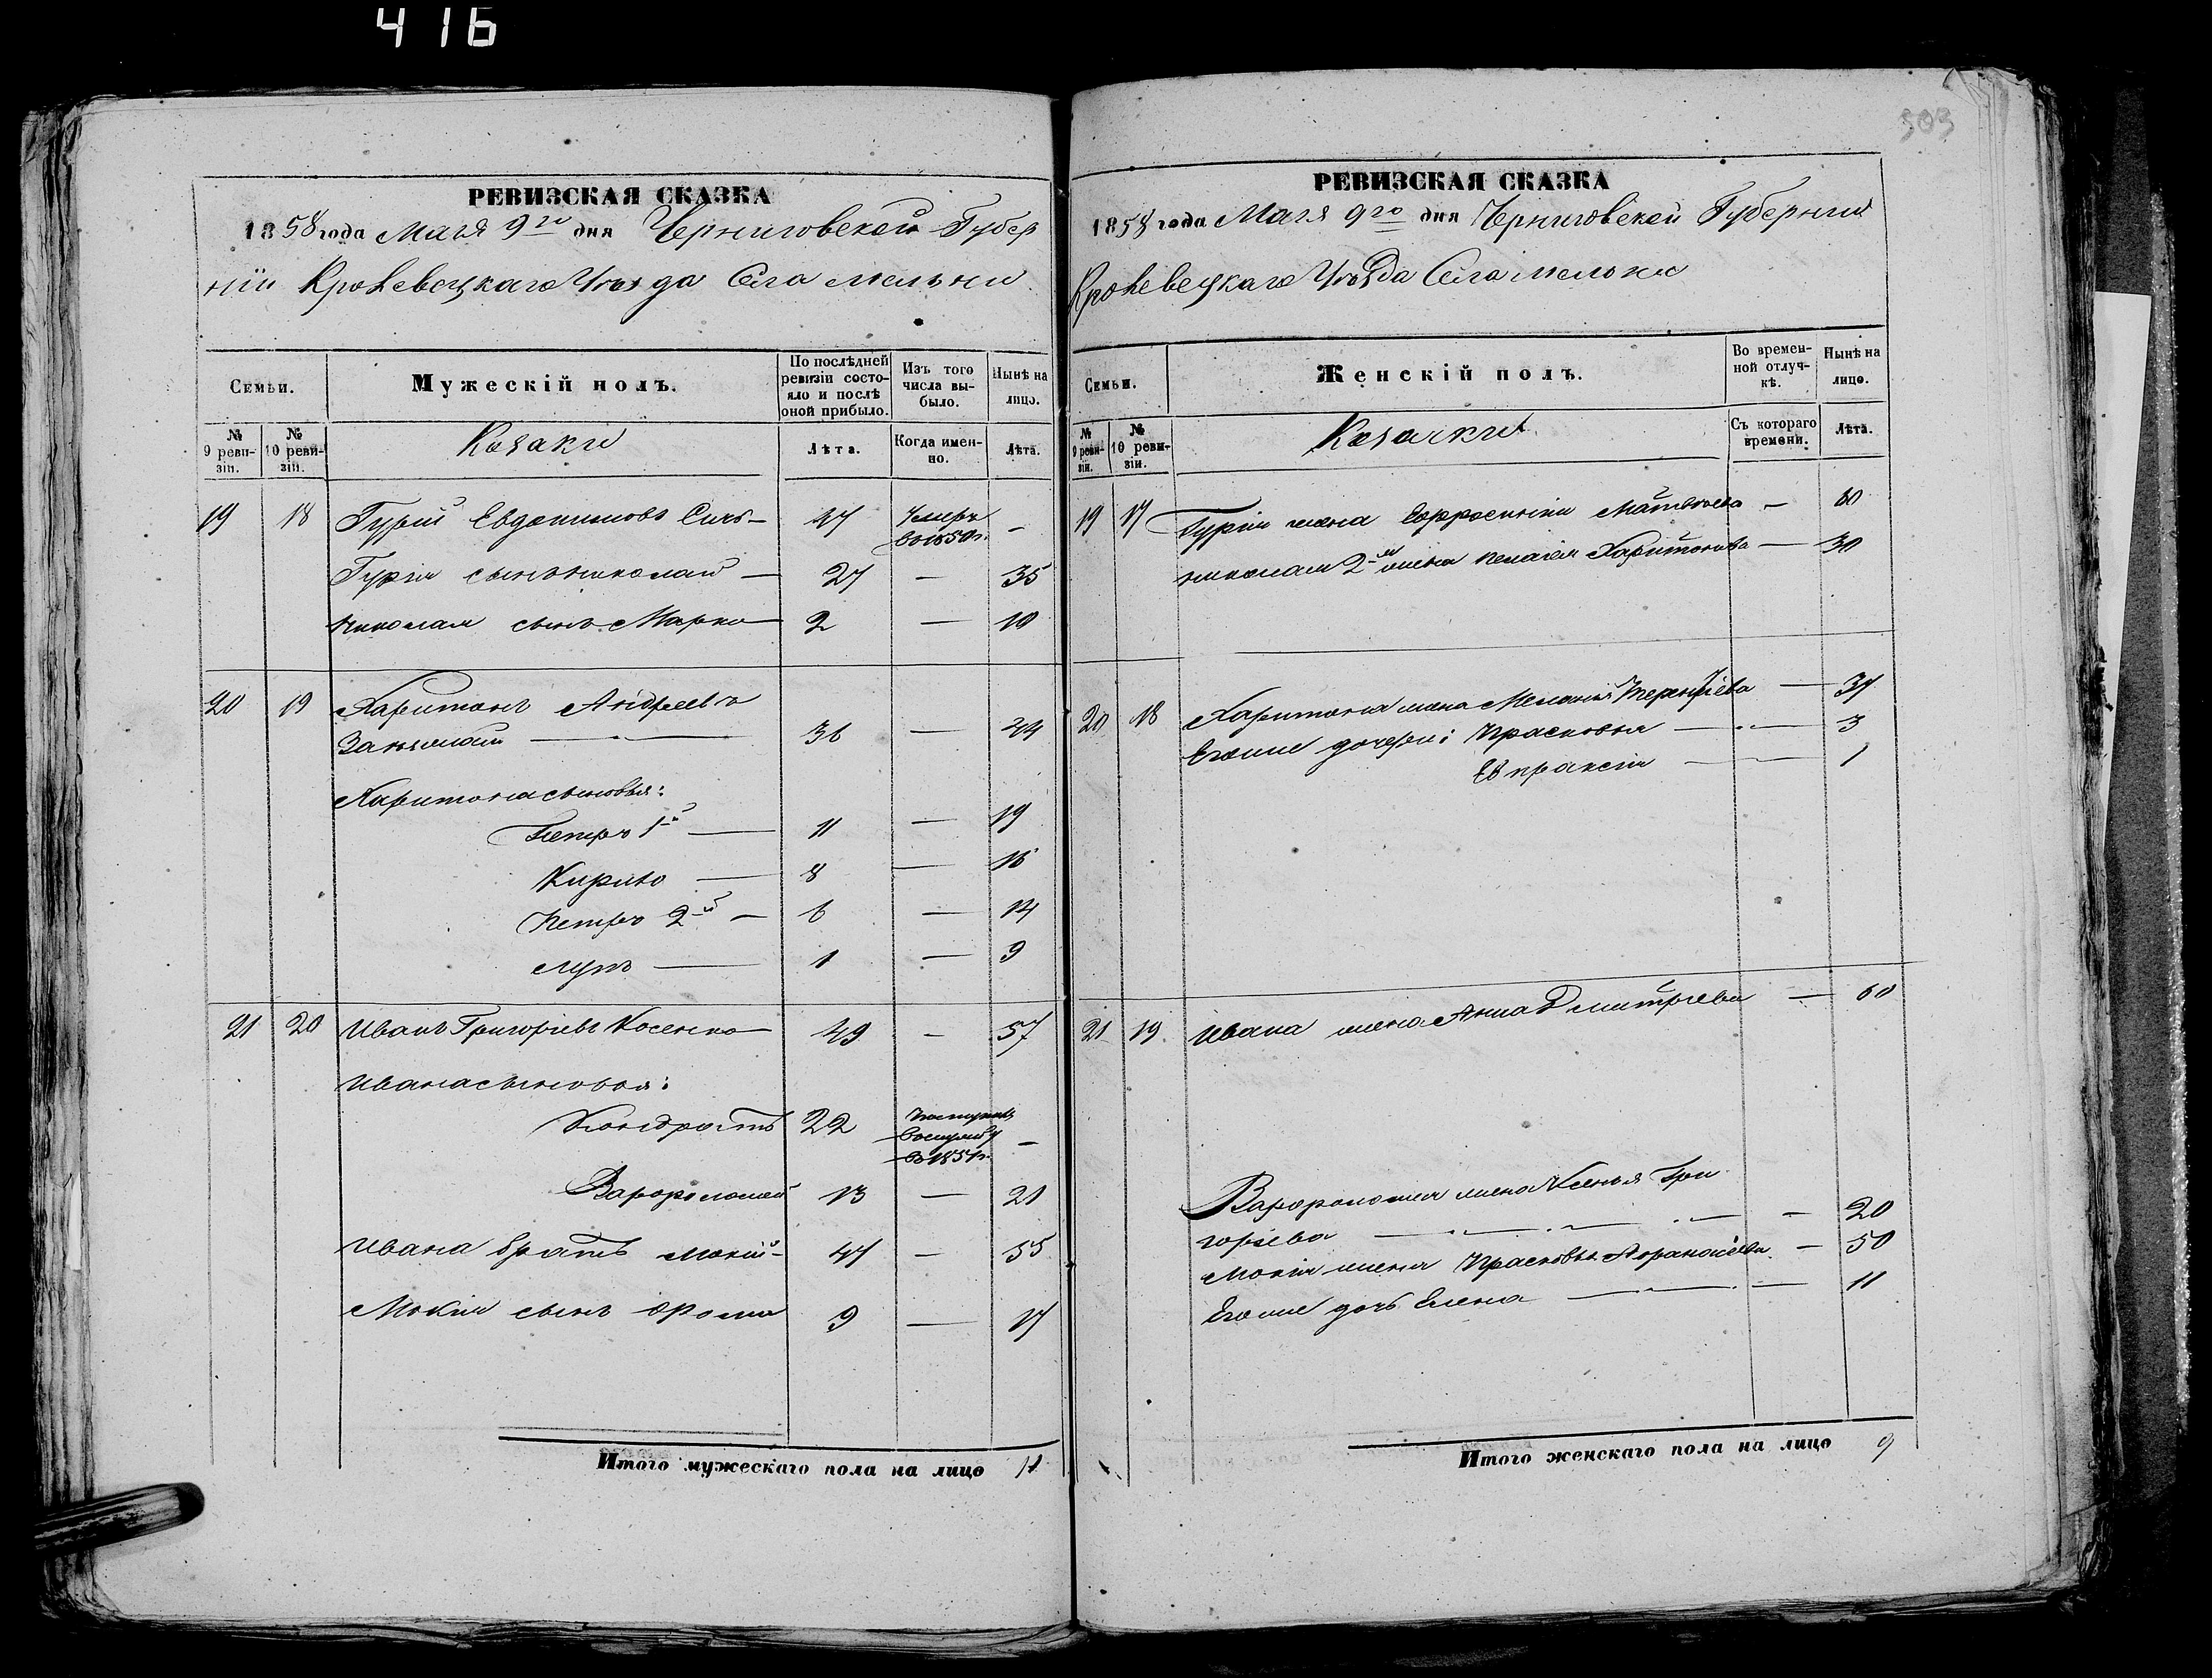 416
303
РЕВИЗСКАЯ СКАЗКА
1858 года Маія 9го дня Черниговской Губер
ніи Кролевецкаго Уѣзда Села Мельни
Семьи.
Мужескій полъ.
По послѣдней ревизіи состояло и послѣ оной прибыло.
Изъ того числа выбыло.
Нынѣ на лицо.
№ 9 ревизіи.
№ 10 ревизіи.
Козаки
Лѣта.
Когда именно.
Лѣта.
19 18 Гурій Евдокимовъ 47 Умеръ в 1850 г. —
Гурія сынъ Николай — 27 — 35
Николая сынъ Марко — 2 — 10
20 19 Харитонъ Андреевъ
36 — 44
Харитона сыновья:
Петръ 1й — 11 — 19
Кирило — 8 — 16
Петръ 2й — 6 — 14
Лупъ — 1 — 9
21 20 Иванъ Григорьевъ Косенко — 49 — 57
Ивана сыновья:
Кондратъ 22 в 1851 г. —
Варфоломей 13 — 21
Ивана братъ Мокій — 47 — 55
Мокія сынъ Фрома 9 — 17
Итого мужескаго пола на лицо 11
РЕВИЗСКАЯ СКАЗКА
1858 года Маія 9го дня Черниговской Губерніи
Кролевецкаго Уѣзда Села Мельни
Семьи.
Женскій полъ.
Во временной отлучкѣ.
Нынѣ на лицо.
№ 9 ревизіи.
№ 10 ревизіи.
Козачки
Съ котораго времени.
Лѣта.
19 17 Гурія жена Ефросинія Матвѣева — 60
Николая 2я жена Пелагія Харитонова — 30
20 18 Харитона жена Меланія Терентіева — 37
Егоже дочери: Прасковья — 3
Евпраксія — 1
21 19 Ивана жена Анна Дмитріева — 60
Варфоломея жена Ксенья Гри
горьева — 20
Мокія жена Прасковья Афанасіева — 50
Егоже дочь Елена — 11
Итого женскаго пола на лицо 9